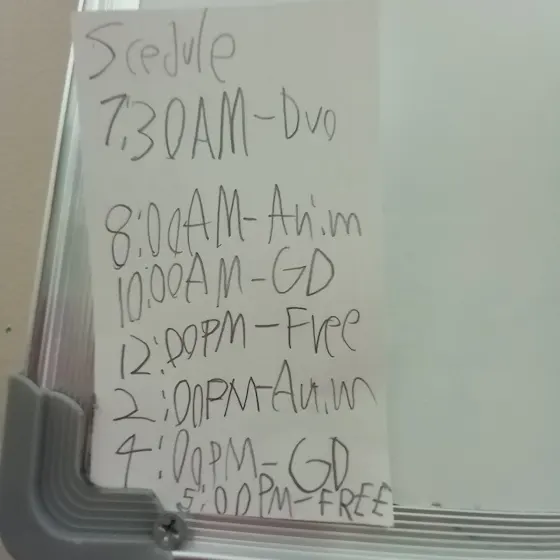 Scedule
7:30AM-Duo
8:00AM-Ani.m
10:00AM-GD
12:00PM-Free
2:00PM-Ani.m
4:00PM-GD
5:00PM-FREE